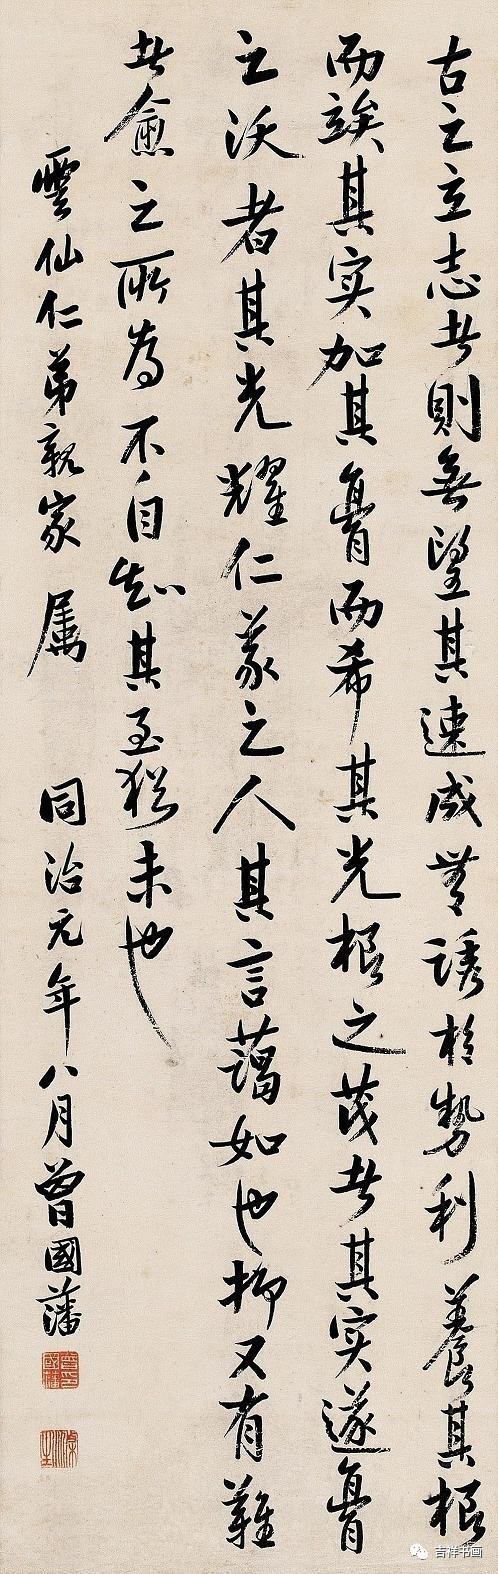 古之立志者則無望其速成無誘於勢利養其根
而竢其实加其膏而希其光根之茂者其实遂膏
之沃者其光耀仁義之人其言藹如也抑又有難
者愈之所為不自知其至猶未也
雲仙仁弟親家属 同治元年八月曾國藩
吉祥书画